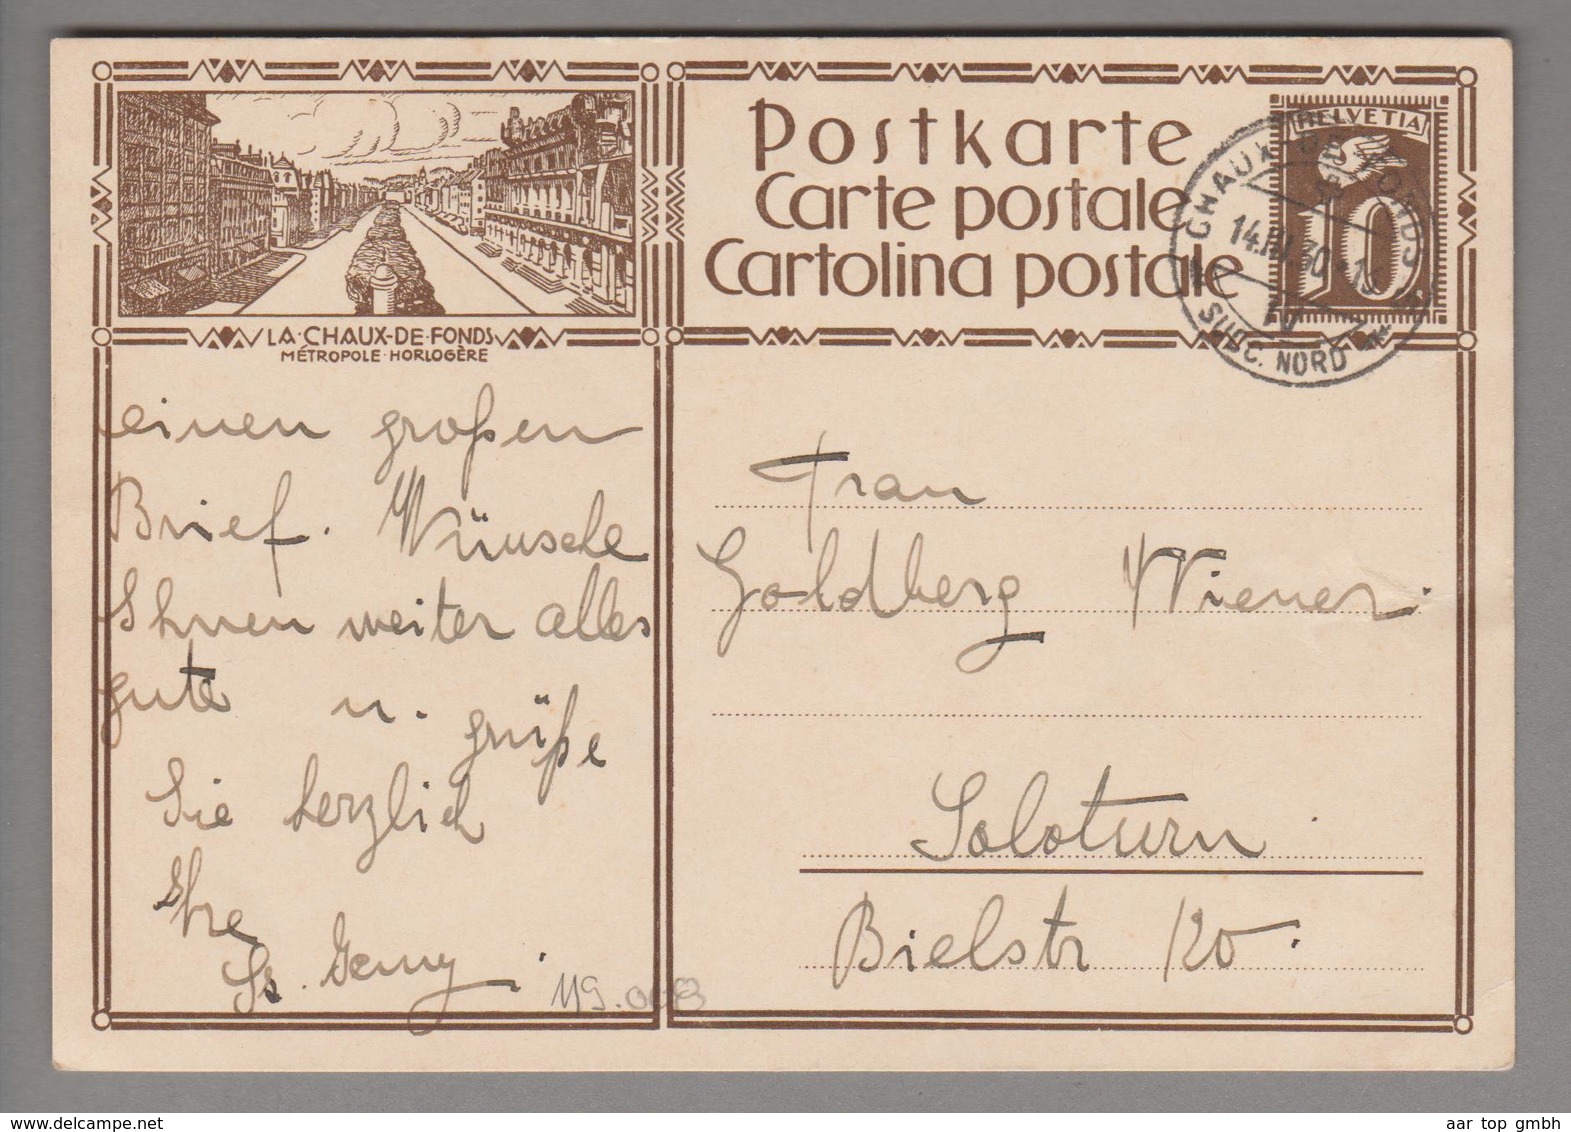 LA·CHAUX-DE-FONDS
MÉTROPOLE·HORLOGÈRE
einen großen
Brief. Wünsche
Ihnen weiter alles
gute u. grüße
Sie herzlich
Ihre
119.0083
Postkarte
Carte postale
Cartolina postale
HELVETIA
10
CHAUX-DE-FONDS
14.IV.30
SUCC. NORD
Frau
Goldberg Wiener.
Soloturn
Bielstr 120.
www.delcampe.net
aar top gmbh